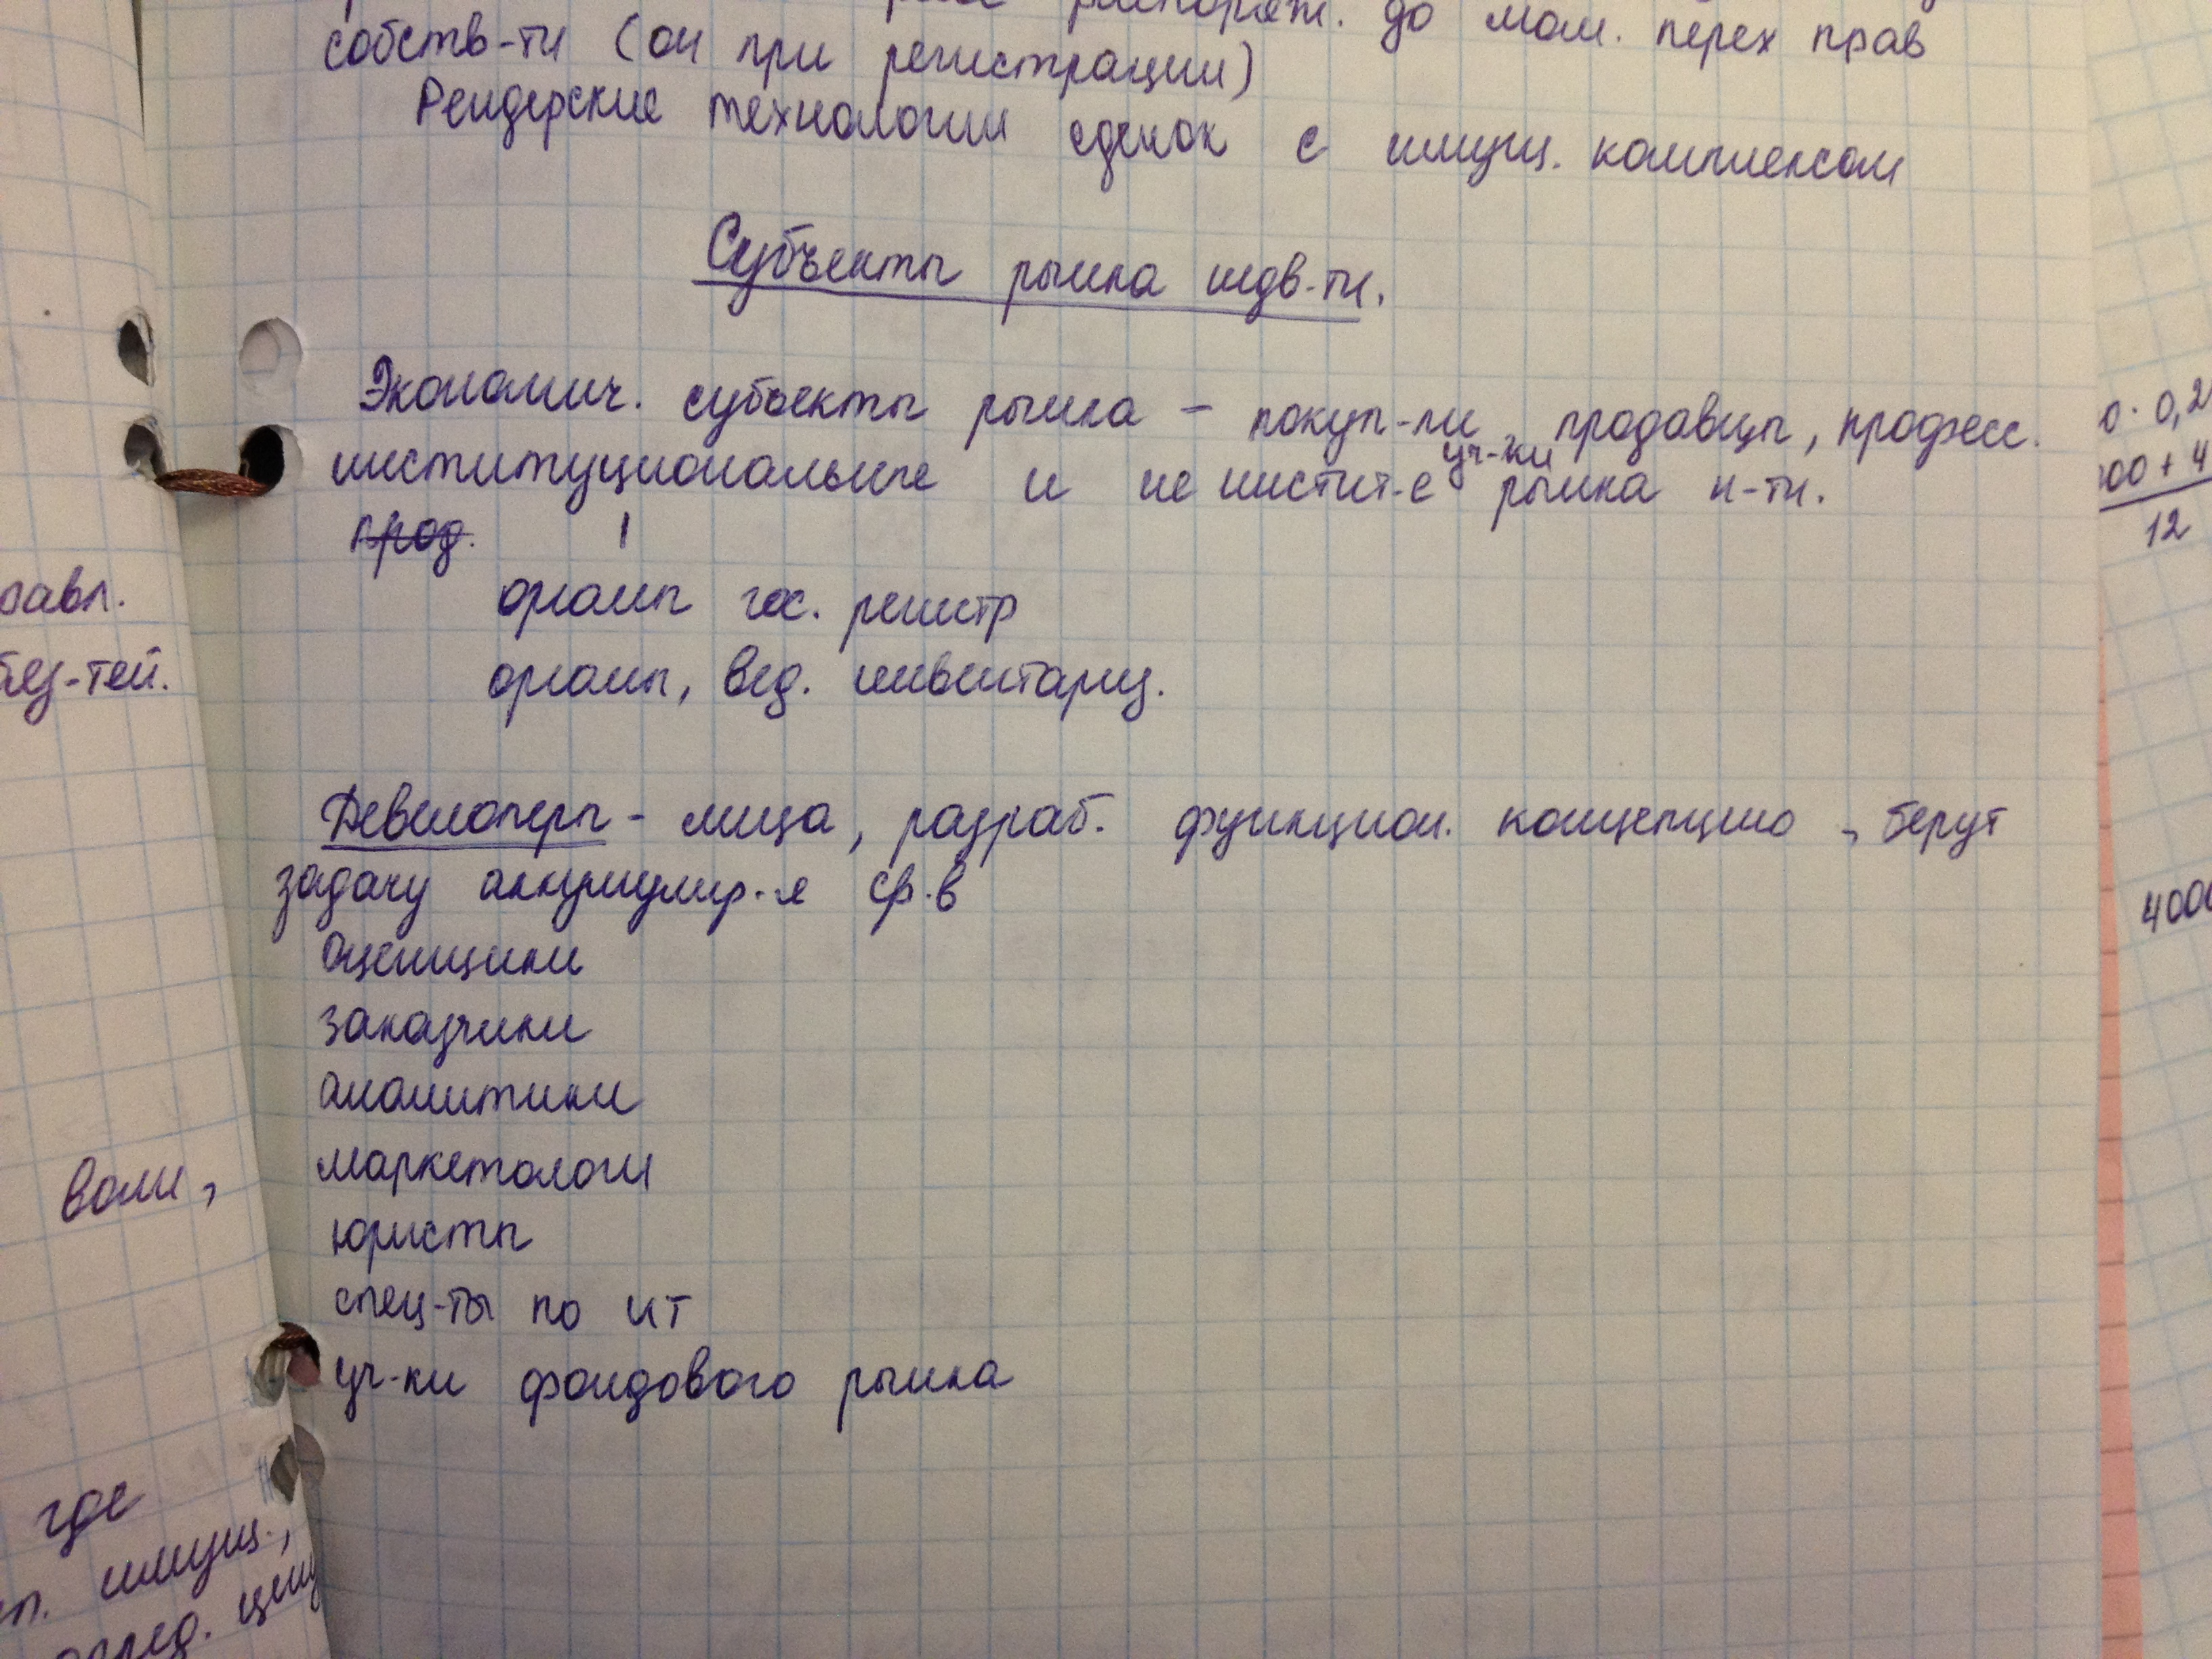 распоряж. до мом. перех прав
собств-ти (он при регистрации)
Рейдерские технологии сделок с имущ. комплексом
Субъекты рынка недв-ти.
Экономич. субъекты рынка – покуп-ли, продавцы, професс.
институциональные и не инстит-е уч-ки рынка н-ти.
прод.
органы гос. регистр
органы, вед. инвентариз.
Девелоперы – лица, разраб. функцион. концепцию, берут
задачу аккумулир-я ср-в
оценщики
заказчики
аналитики
маркетологи
юристы
спец-ты по ИТ
уч-ки фондового рынка
где
имущ.,
0,2
00 + 4
12